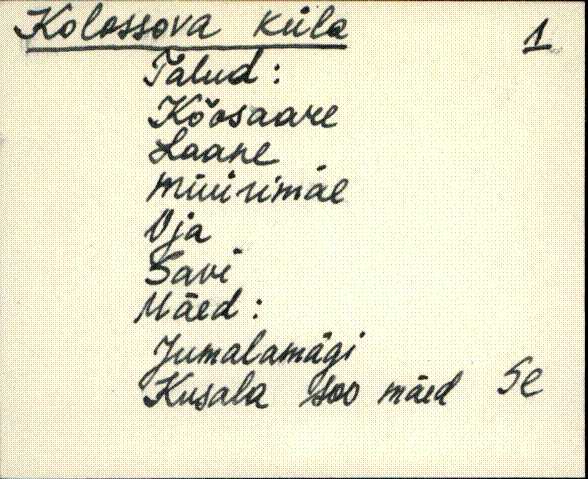 Kolossova küla 1
Talud:
Kõosaare
Laane
Müürimäe
Oja
Savi
Mäed:
Jumalamägi
Kusala soo mäed Se